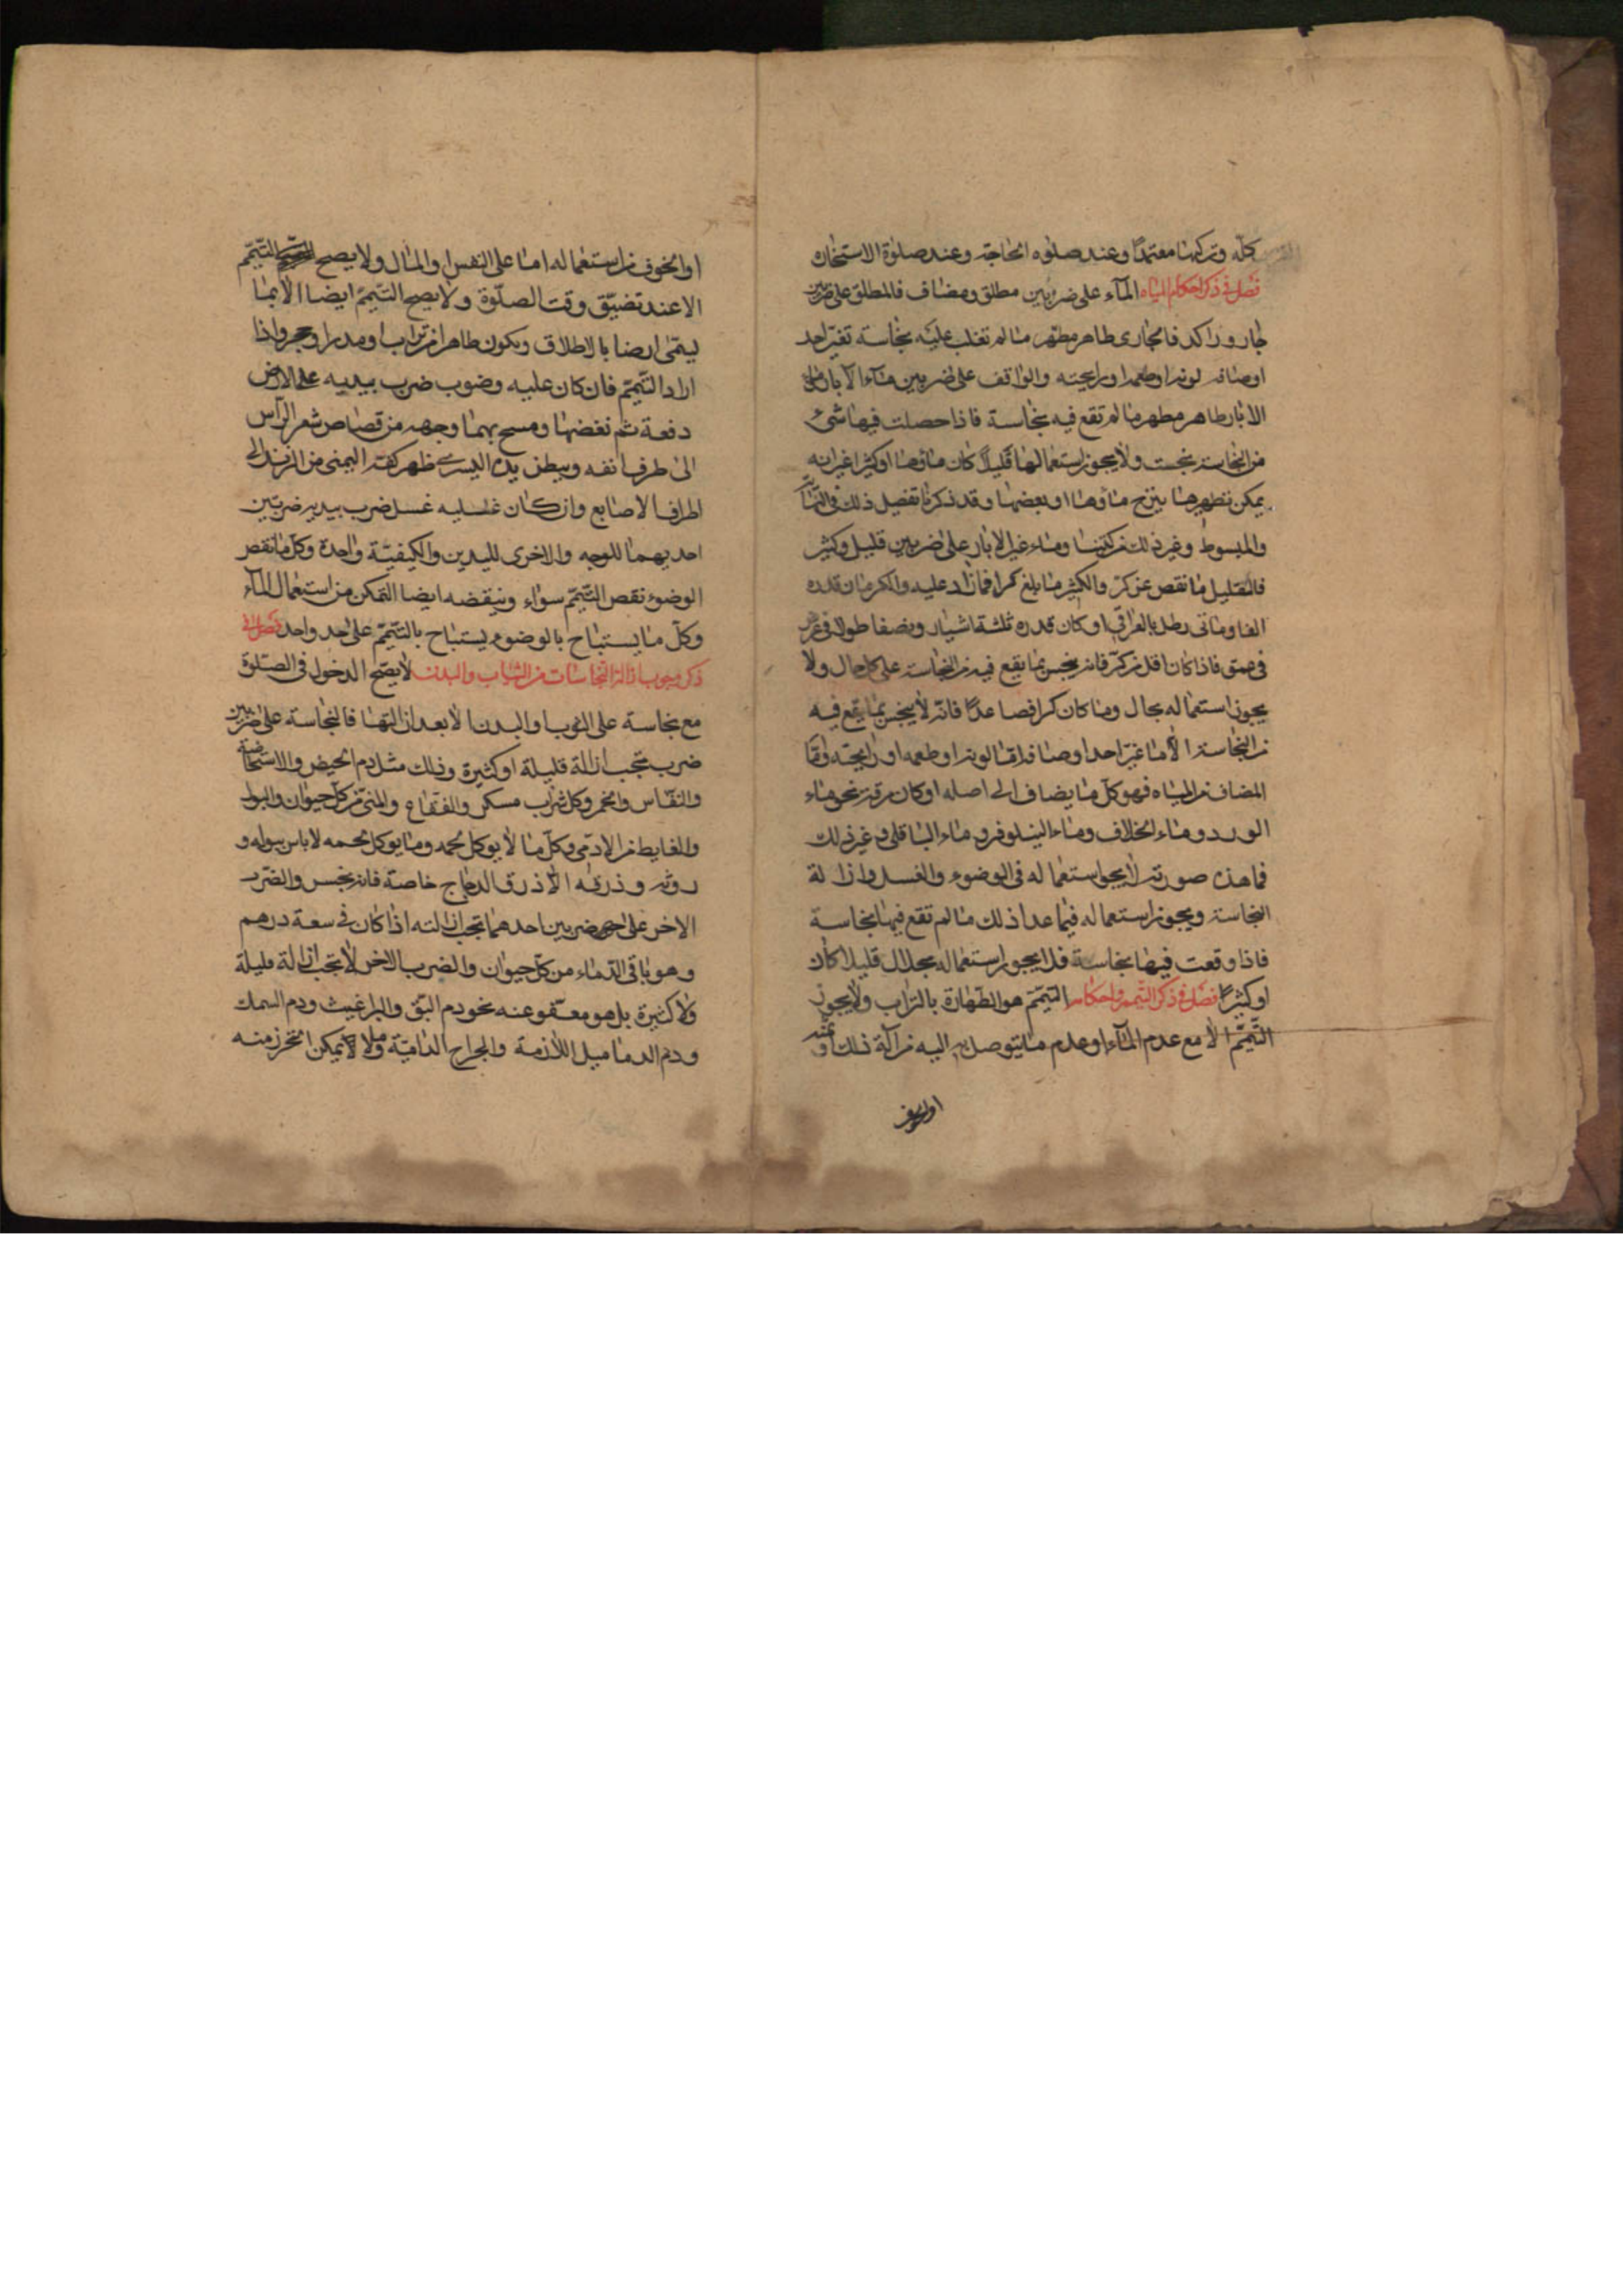 كله وتركها معتمدًا وعند صلوه الحاجة وعند صلوة الاستخاره
فصل في ذكر احكام المياه المآء على ضربين مطلق ومضاف فالمطلق على ضربين
جار وراكد فالجارى طاهر مطهر ما لم تغلب عليه نجاسة تغيّر احد
اوصافه لونه او طعمه او رايحته والواقف على ضربين مآء الآبار فماء
الابار طاهر مطهر ما لم تقع فيه نجاسة فاذا حصلت فيها شىء
من النجاسة نجست ولا يجوز استعمالها قليلًا كان ماؤها او كثيرا غير انه
يمكن تطهيرها بنزح ماؤها او بعضها وقد ذكرنا تفصيل ذلك في النهاية
والمبسوط وغير ذلك من كتبنا وماء غير الابار على ضربين قليل وكثير
فالقليل ما نقص عن كرّ والكثير ما بلغ كرا فما زاد عليه والكر ما ن قدره
الفا ومائى رطل بالعراقي او كان قدره ثلثة اشبار ونصفا طولا في عرض
في عمق فاذا كان اقل من كرّ فانه ينجس بما يقع فيه من النجاسة على كل حال ولا
يجوز استعماله بحال وما كان كرا فصاعدًا فانّه لا ينجس بما يقع فيه
من النجاسة الّا ما غيّر احد اوصافه امّا لونه او طعمه او رايحته وامّا
المضاف من المياه فهو كلّ ما يضاف الى اصله او كان مرقة نحو ماء
الورد وماء الخلاف وماء النيلوفر وماء الباقلى وغير ذلك
فما هذه صورته لا يجو استعماله في الوضوء والغسل وازالة
النجاسة ويجوز استعماله فيما عدا ذلك ما لم تقع فيها نجاسة
فاذا وقعت فيها نجاسة فلا يجوز استعماله بحلال قليلا كان
او كثيرًا فصل في ذكر التيمم واحكامه التيمّم هو الطّهارة بالتراب ولا يجوز
التّيمّم الّا مع عدم المآء او عدم ما يتوصل به اليه من آلة ذلك او ثمنه
او الخوف
او الخوف من استعماله امّا على النفس او المال ولا يصح التيمّم
الا عند تضيّق وقت الصلوة ولا يصح التيمّم ايضا الّا بما
يسمّى ارضا بالاطلاق ويكون طاهرا من تراب او مدر او حجر واذا
اراد التيمّم فان كان عليه وضوء ضرب بيديه على الارض
دفعة ثم نفضها ومسح بهما وجهه من قصاص شعر الرّأس
الى طرف انفه وببطن يده اليسرى ظهر كفّه اليمنى من الزند الى
اطراف الاصابع وان كان عليه غسل ضرب بيديه ضربتين
احديهما للوجه والاخرى لليدين والكيفيّة واحدة وكل ما نقض
الوضوء نقض التيمّم سواء وينقضه ايضا التمكن من استعمال المآء
وكلّ ما يستباح بالوضوء يستباح بالتّيمّم على حد واحد فصل في
ذكر وجوب ازالة النجاسات من الثياب والبدن لا يصّح الدخول في الصلوة
مع نجاسة على الثوب او البدن الا بعد ازالتها فالنجاسة على ضربين
ضرب تجب ازالة قليلة او كثيرة وذلك مثل دم الحيض والاستحاضة
والنفاس والخمر وكل شراب مسكر والفقّاع والمنىّ من كلّ حيوان والبول
والغايط من الادمّى وكلّ ما لا يوكل لحمه وما يوكل لحمه لا باس ببوله و
روثه وذرقه الّا ذرق الدجاج خاصّة فانه نجس والضرب
الاخر على ضربين احدهما تجب ازالته اذا كان في سعة درهم
وهو باقى الدّماء من كلّ حيوان والضرب الاخر لا تجب ازالة قليلة
ولا كثيرة بل هو معفو عنه نحو دم البقّ والبراغيث ودم السمك
ودم الدماميل اللازمة والجراح الداميّة وما لا يمكن التحرز منه